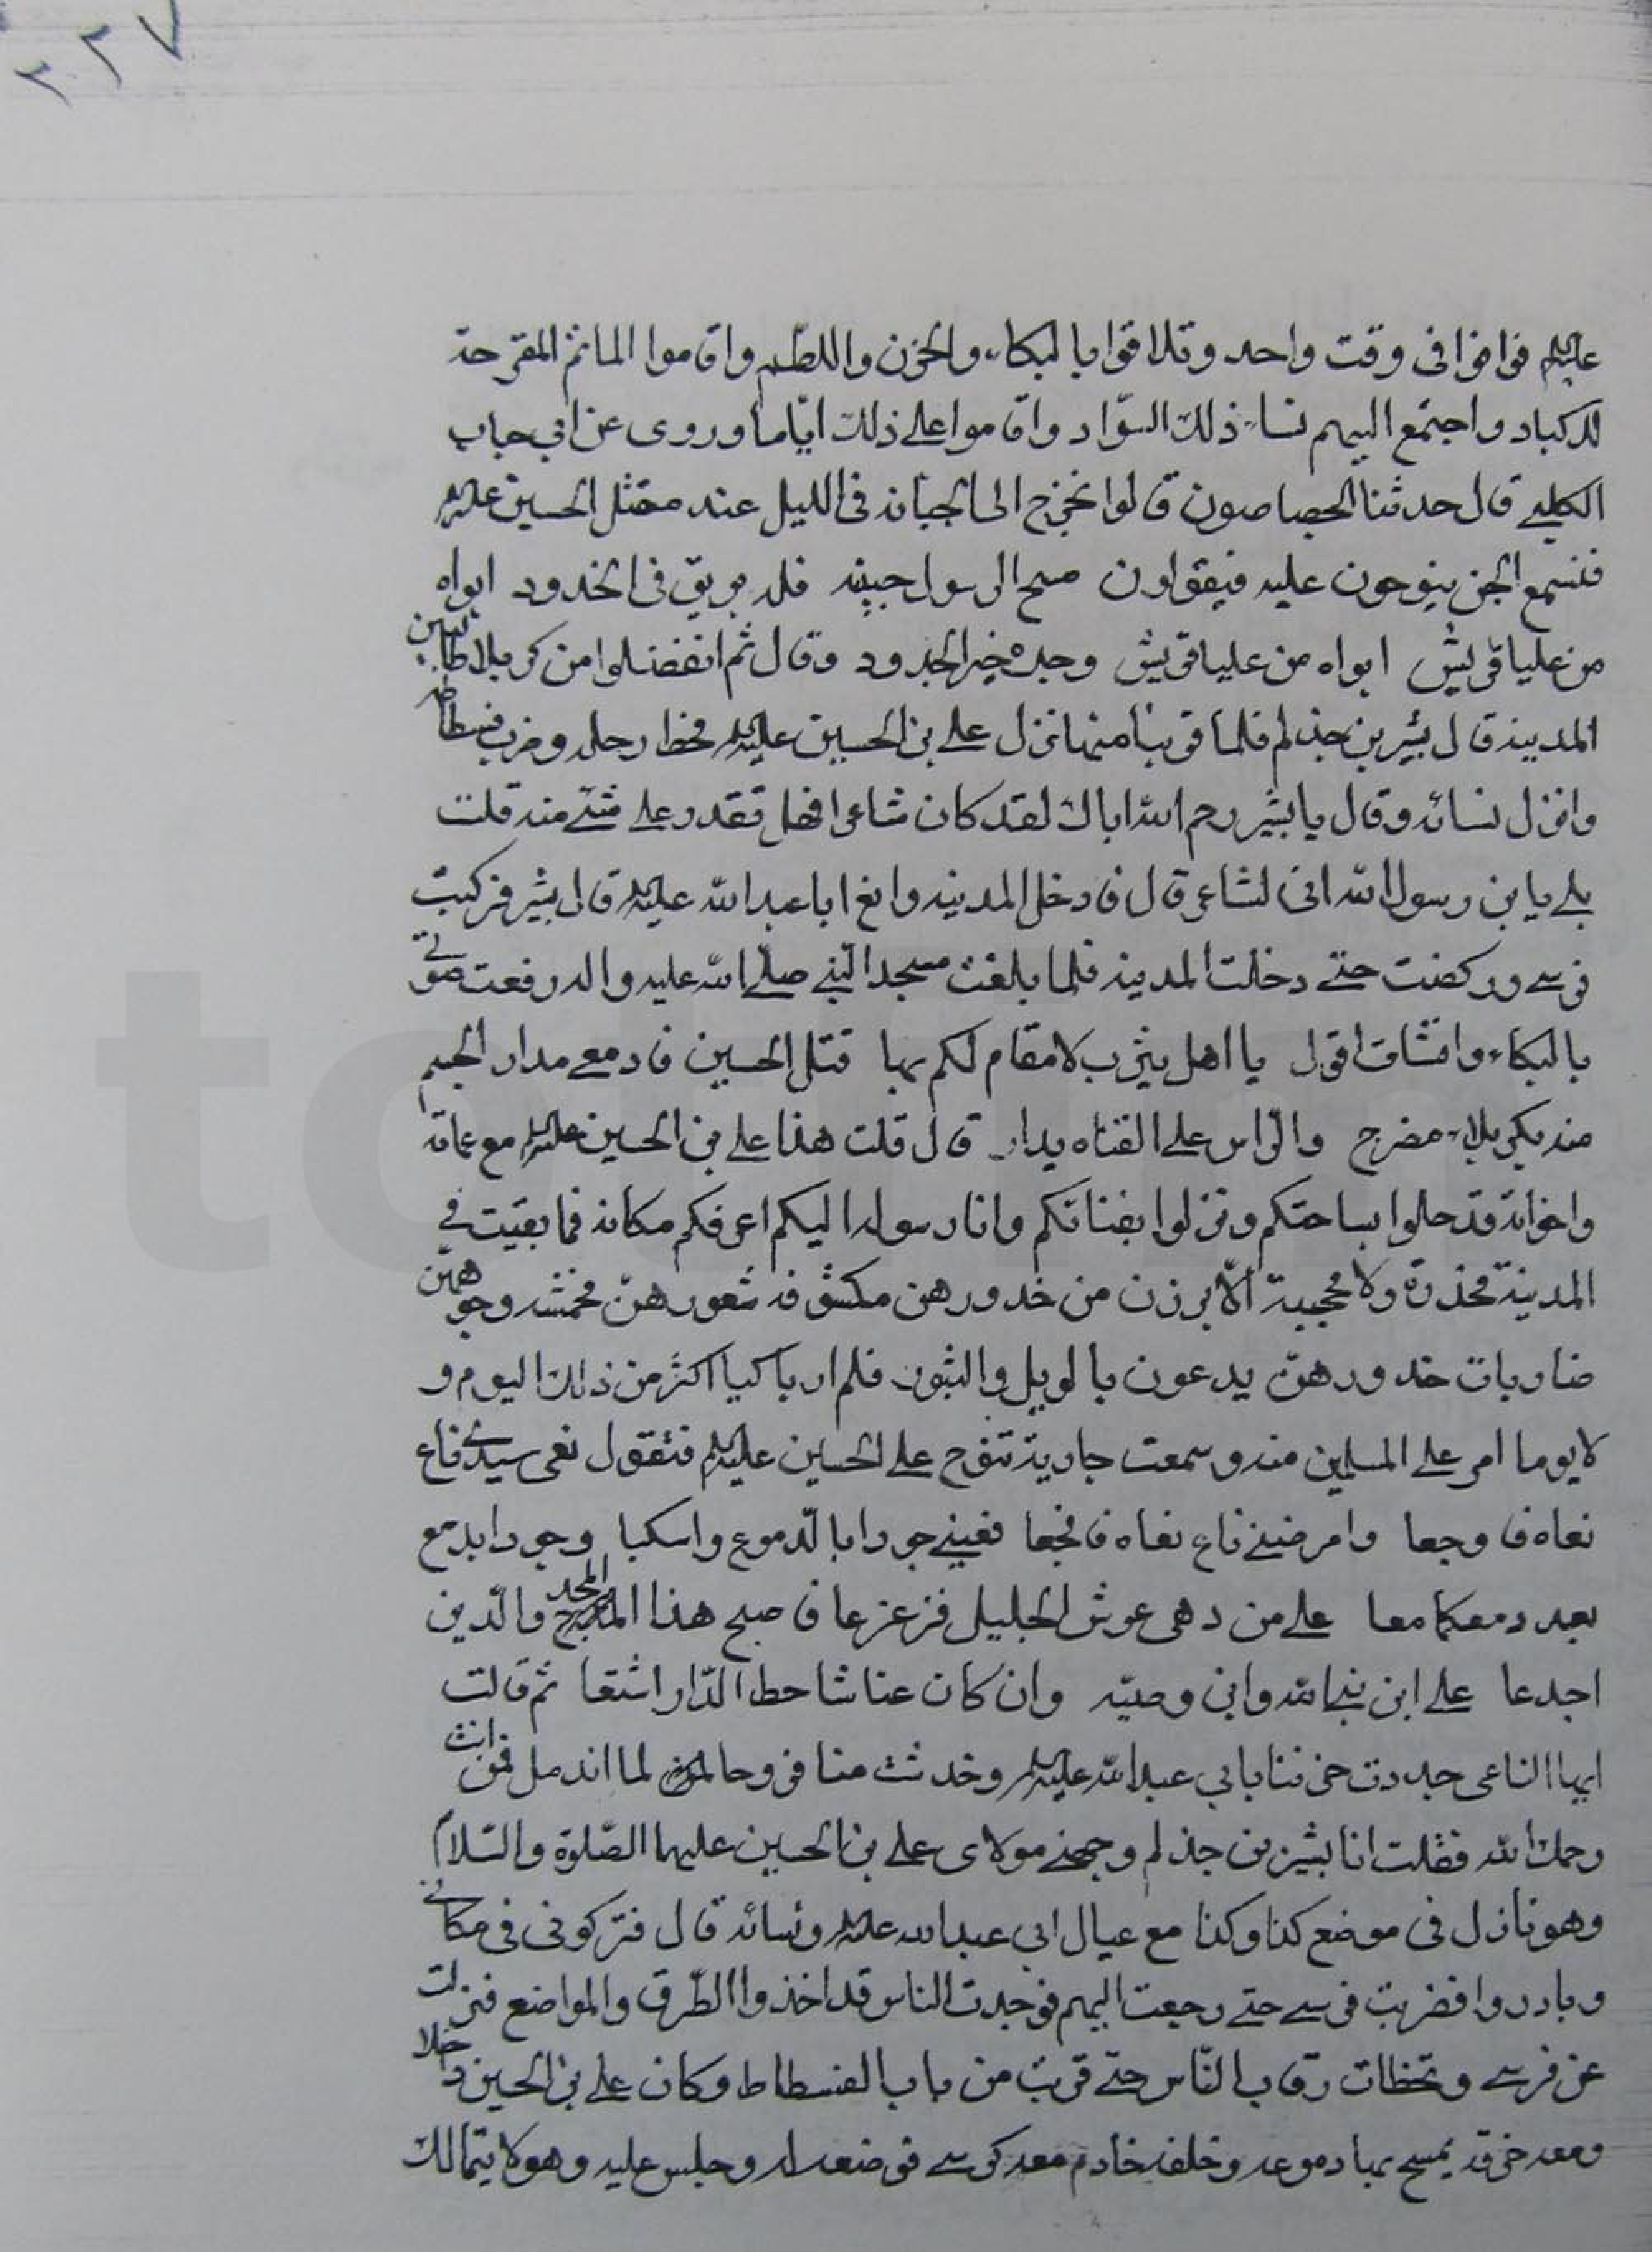 ٢٢٧
عليه السلام فوافوا فى وقت واحد وتلاقوا بالبكاء والحزن واللطم واقاموا الماتم المقرحة
للاكباد واجتمع اليهم نساء ذلك السواد واقاموا على ذلك ايّاما وروى عن ابى جناب
الكلبى قال حدثنا الجصاصون قالوا نخرج الى الجبانه فى الليل عند مقتل الحسين عليه السلام
فنسمع الجن ينوحون عليه فيقولون مسح الرسول جبينه فله بريق فى الخدود ابواه
من عليا قريش ابواه من عليا قريش وجده خير الجدود وقال ثم انفضلوا من كربلا طالبين
المدينه قال بشير بن جذلم فلما قربنا منها نزل على بن الحسين عليه السلام فحط رحله وضرب فسطاطه
وانزل نسائه وقال يا بشير رحم الله اباك لقد كان شاعرا فهل تقدر على شئ منه قلت
بلى يابن رسول الله انى لشاعر قال فادخل المدينه وانع ابا عبد الله عليه السلام قال بشير فركبت
فرسى وركضت حتى دخلت المدينه فلما بلغت مسجد النبى صلى الله عليه واله رفعت صوتى
بالبكاء وانشات اقول يا اهل يثرب لا مقام لكم بها قتل الحسين فادمعى مدرار الجسم
منه بكربلاء مضرج والرّاس على القناه يدار قال قلت هذا على بن الحسين عليه السلام مع عماته
واخواته قد حلوا بساحتكم ونزلوا بفنائكم وانا رسوله اليكم اعرفكم مكانه فما بقيت فى
المدينة مخدرة ولا محجبة الّا برزن من خدورهن مكشوفه شعورهنّ مخمشه وجوههنّ
ضاربات خدودهنّ يدعون بالويل والثبور فلم ار باكيا اكثر من ذلك اليوم و
لا يوما امر على المسلمين منه وسمعت جارية تنوح على الحسين عليه السلام فتقول نعى سيدى ناع
نعاه فاوجعا وامرضنى ناع نعاه فافجعا فعينى جودا بالدّموع واسكبا وجودا بدمع
بعد دمعكما معا على من دهى عرش الجليل فزعزعا فاصبح هذا المجد والدّين
اجدعا على ابن نبى الله وابن وصيّه وان كان عنا شاحط الدّار اشتعا ثم قالت
ايها الناعى جددت حزننا بابى عبد الله عليه السلام وخدشت منا قروحا لما اندمل فمن انت
رحمك الله فقلت انا بشير بن جذلم وجهنى مولاى على بن الحسين عليهما الصّلوة والسّلام
وهو نازل فى موضع كذا وكذا مع عيال ابى عبد الله عليه السلام ونسائه قال فتركونى فى مكانى
وبادروا فضربت فرسى حتى رجعت اليهم فوجدت الناس قد اخذوا الطّرق والمواضع فنزلت
عن فرسى وتخطات رقاب النّاس حتّى قربت من باب الفسطاط وكان على بن الحسين داخلا
ومعه خرقة يمسح بها دموعه وخلفه خادم معه كرسى فوضعه له وجلس عليه وهو لا يتمالك